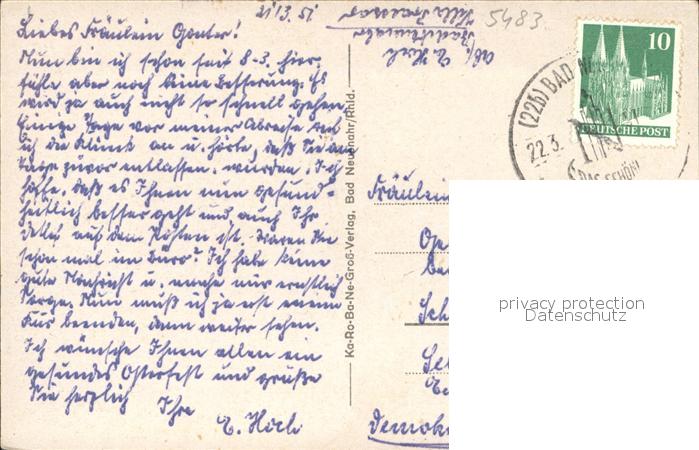 21/3. 51
5483
Liebes Fräulein Gonter!
Nun bin ich schon seit 8-3. hier,
fühle aber noch keine Besserung. Es
wird ja auch nicht so schnell gehen.
Einige Tage vor meiner Abreise rief
ich die Klinik an u. hörte, daß Sie am
Tage zuvor entlassen wurden. Ich
hoffe, daß es Ihnen nun gesund-
heitlich besser geht und auch Ihr
auf dem Posten ist. Waren Sie
schon mal im Büro? Ich habe keine
gute Nachricht u. mache mir ernstlich
Sorge. Nun muß ich ja erst meine
Kur beenden, dann weiter sehen.
Ich wünsche Ihnen allen ein
gesundes Osterfest und grüße
Sie herzlich Ihre
E. Koch
Abs. E. Koch
Bad Neuenahr
Ka-Ro-Ba-Ne-Groß-Verlag, Bad Neuenahr/Rhld.
10
DEUTSCHE POST
(22b) BAD
22.3.
Fräulein
privacy protection
Datenschutz